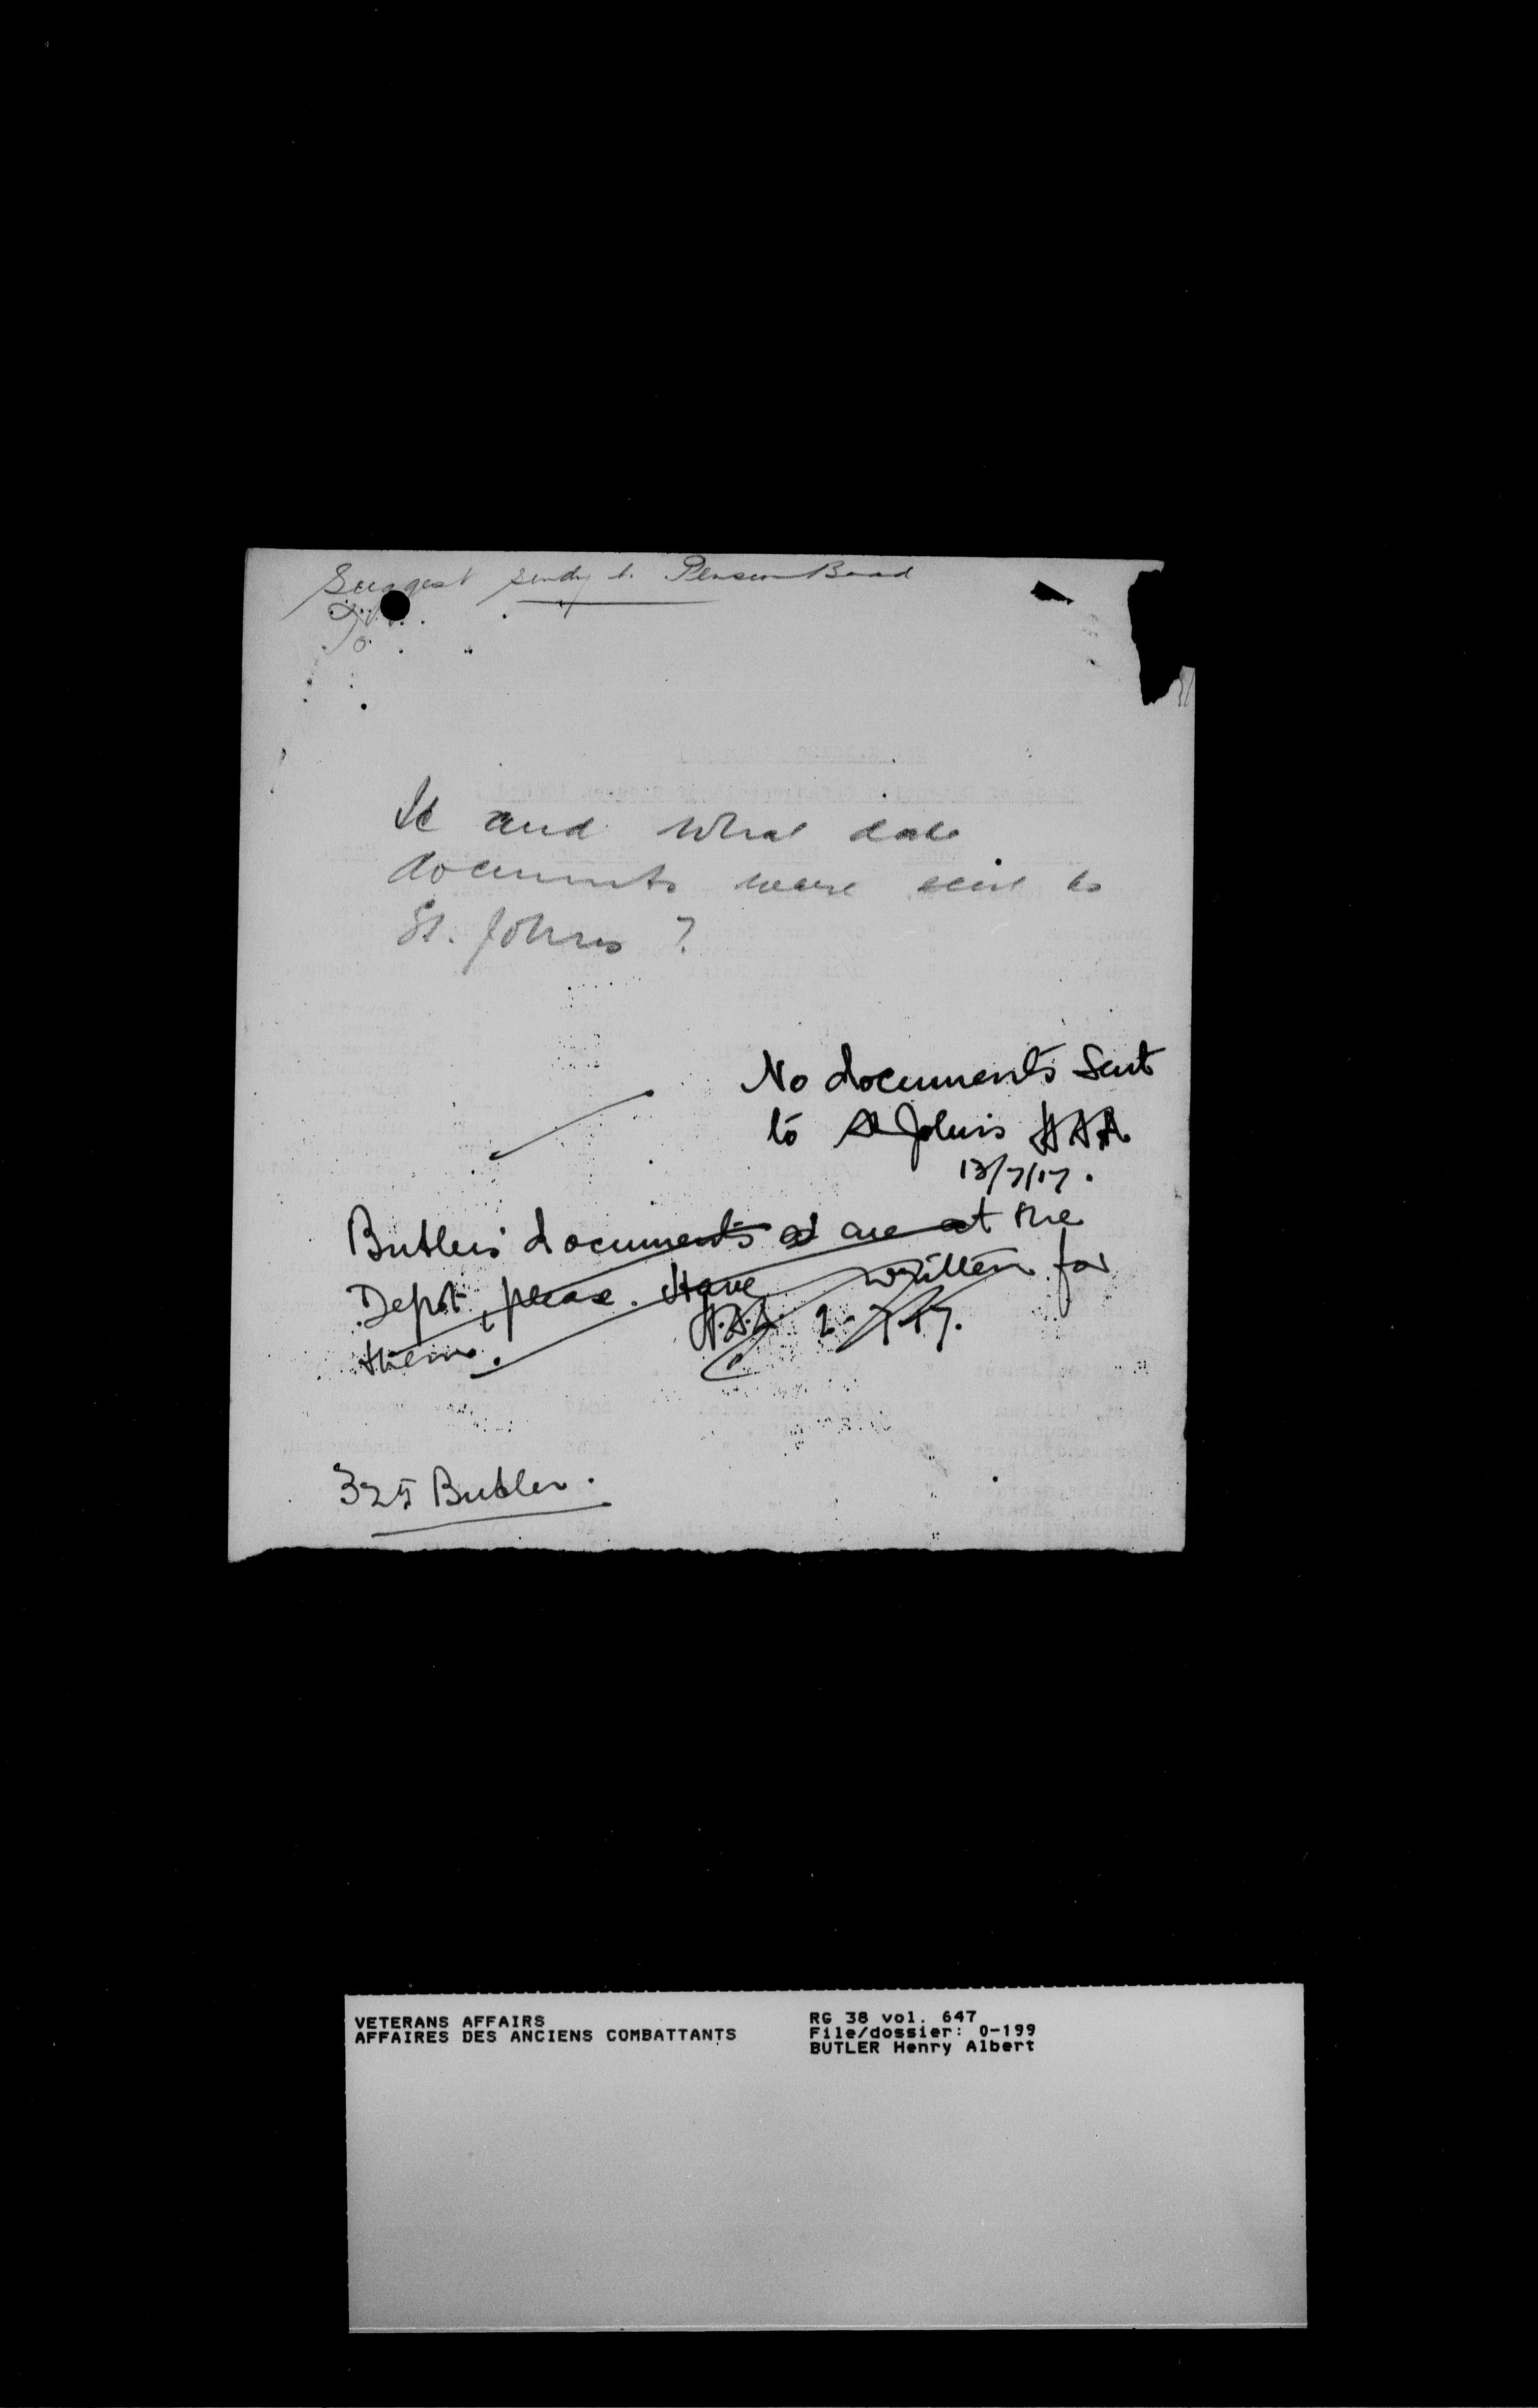 Suggest sendg to Pension Board
If and what date
documents were sent to
St. Johns ?
No documents Sent
to St Johns HAA
13/7/17.
Butlers documents are at the
Depot, please. Have written for
them. H.A.A. 2.7.17.
325 Butler.
VETERANS AFFAIRS
AFFAIRES DES ANCIENS COMBATTANTS
RG 38 vol. 647
File/dossier: 0-199
BUTLER Henry Albert